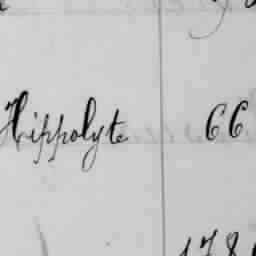 Hippolyte 66